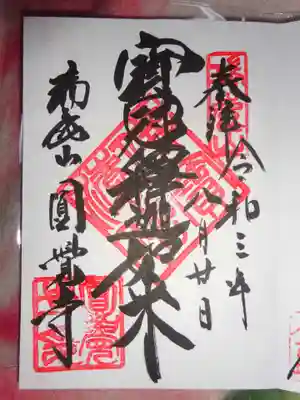 令和三年
八月廿日
寶冠釋迦如来
瑞鹿山 圓覺寺